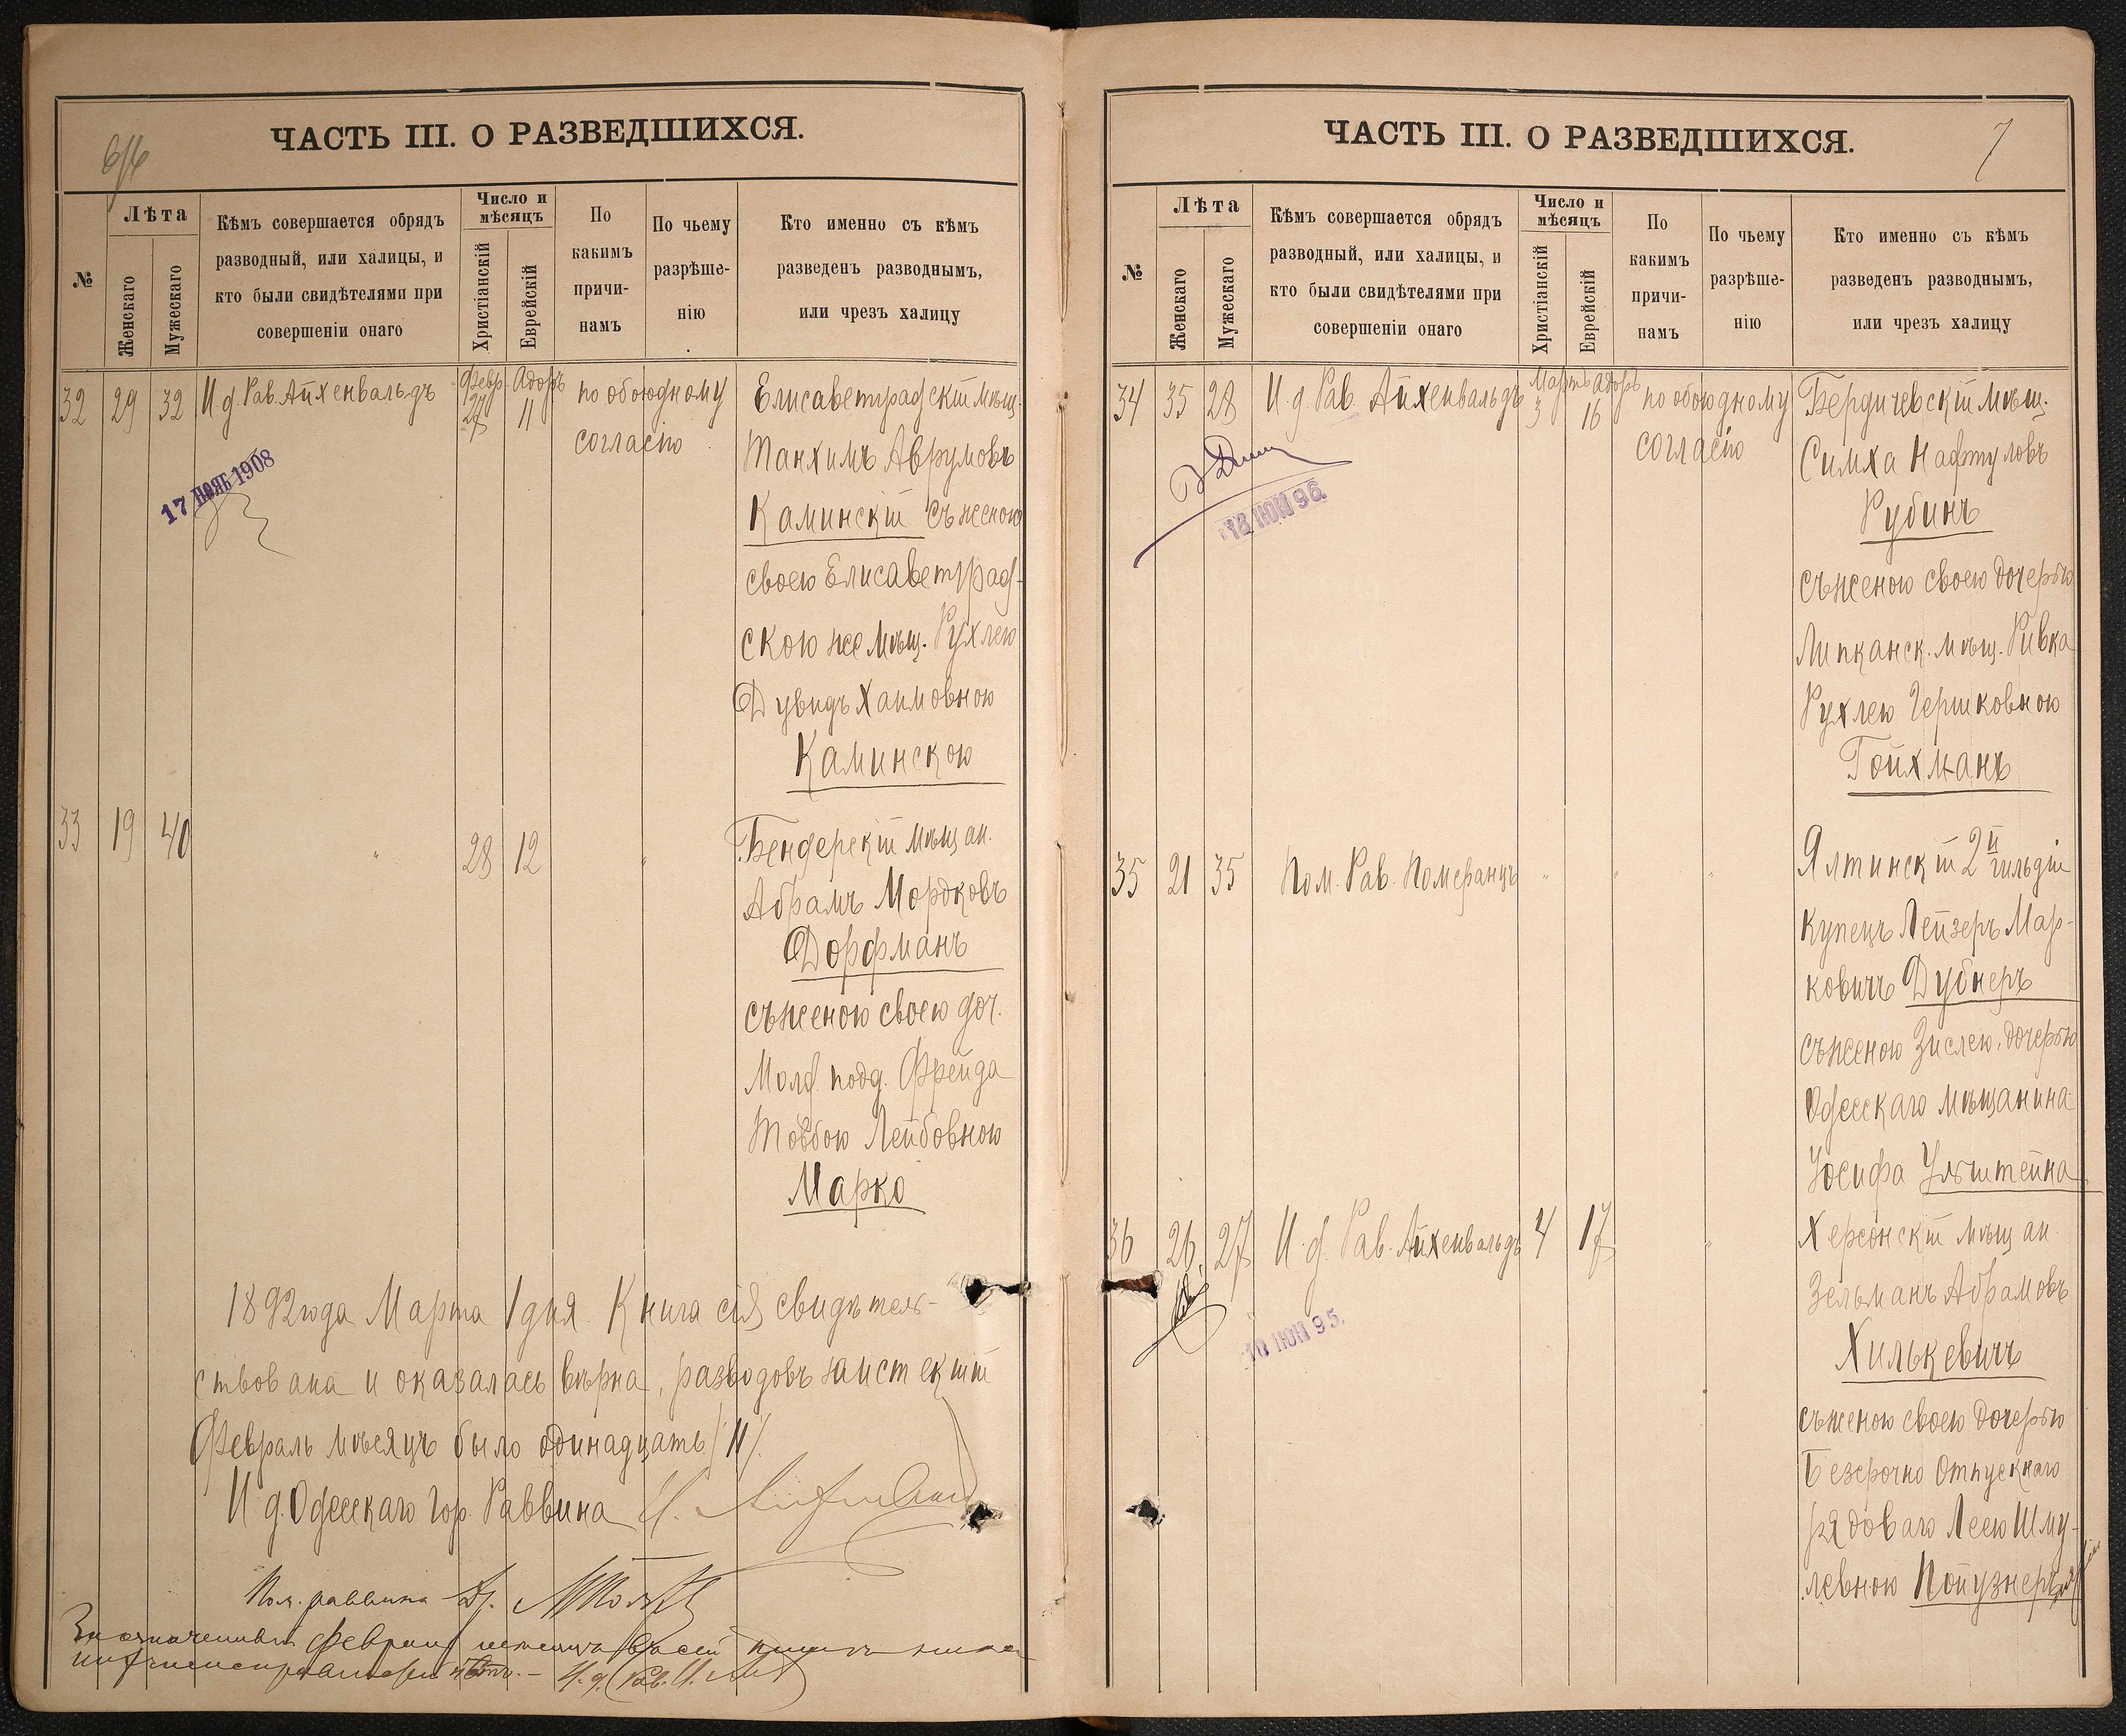 ЧАСТЬ III. О РАЗВЕДШИХСЯ.
№
Лѣта
Женскаго
Мужескаго
Кѣмъ совершается обрядъ
разводный, или халицы, и
кто были свидѣтелями при
совершеніи онаго
Число и
мѣсяцъ
Христіанскій
Еврейскій
По
какимъ
причи-
намъ
По чьему
разрѣше-
нію
Кто именно съ кѣмъ
разведенъ разводнымъ,
или чрезъ халицу
32 29 32 И.д. Рав. Айхенвальдъ
Февр. 27
Адоръ 11
по обоюдному
согласію
Елисаветградскій мѣщ.
Танхимъ Аврумовъ
Каминскій съ женою
своею Елисаветград-
скою же мѣщ. Рухлею
Дувидъ Хаимовною
Каминскою
17 НОЯБ 1908
33 19 40 " 28 12 "
Бендерскій мѣщан.
Абрамъ Мордковъ
Дорфманъ
съ женою своею доч.
Молд. подд. Фрейда
Товбою Лейбовною
Марко
1892 года Марта 1 дня. Книга сія свидѣтель-
ствована и оказалась вѣрна, разводовъ за истекшій
Февраль мѣсяцъ было одинадцать /11/.
И д. Одесскаго Гор. Раввина
Пом. раввина Др.
ЧАСТЬ III. О РАЗВЕДШИХСЯ.
7
№
Лѣта
Женскаго
Мужескаго
Кѣмъ совершается обрядъ
разводный, или халицы, и
кто были свидѣтелями при
совершеніи онаго
Число и
мѣсяцъ
Христіанскій
Еврейскій
По
какимъ
причи-
намъ
По чьему
разрѣше-
нію
Кто именно съ кѣмъ
разведенъ разводнымъ,
или чрезъ халицу
34 35 28 И.д. Рав. Айхенвальдъ
Мартъ 3
Адоръ 16
по обоюдному
согласію
Бердичевскій мѣщ.
Симха Нафтуловъ
Рубинъ
съ женою своею дочерью
Липканск. мѣщ. Ривка
Рухлею Гершковною
Гойхманъ
18 ЮН 96
35 21 35 Пом. Рав. Померанцъ " " "
Ялтинскій 2й гильдіи
купецъ Лейзеръ Мар-
ковичъ Дубнеръ
съ женою Зислею, дочерью
Одесскаго мѣщанина
Іосифа Ульштейна
36 26 27 И.д. Рав. Айхенвальдъ 4 17 "
Херсонскій мѣщан.
Зельманъ Абрамовъ
Хилькевичъ
съ женою своею дочерью
Безсрочно Отпускнаго
рядоваго Леею Шму-
левною Пойузнеръ
10 ЮН 95.